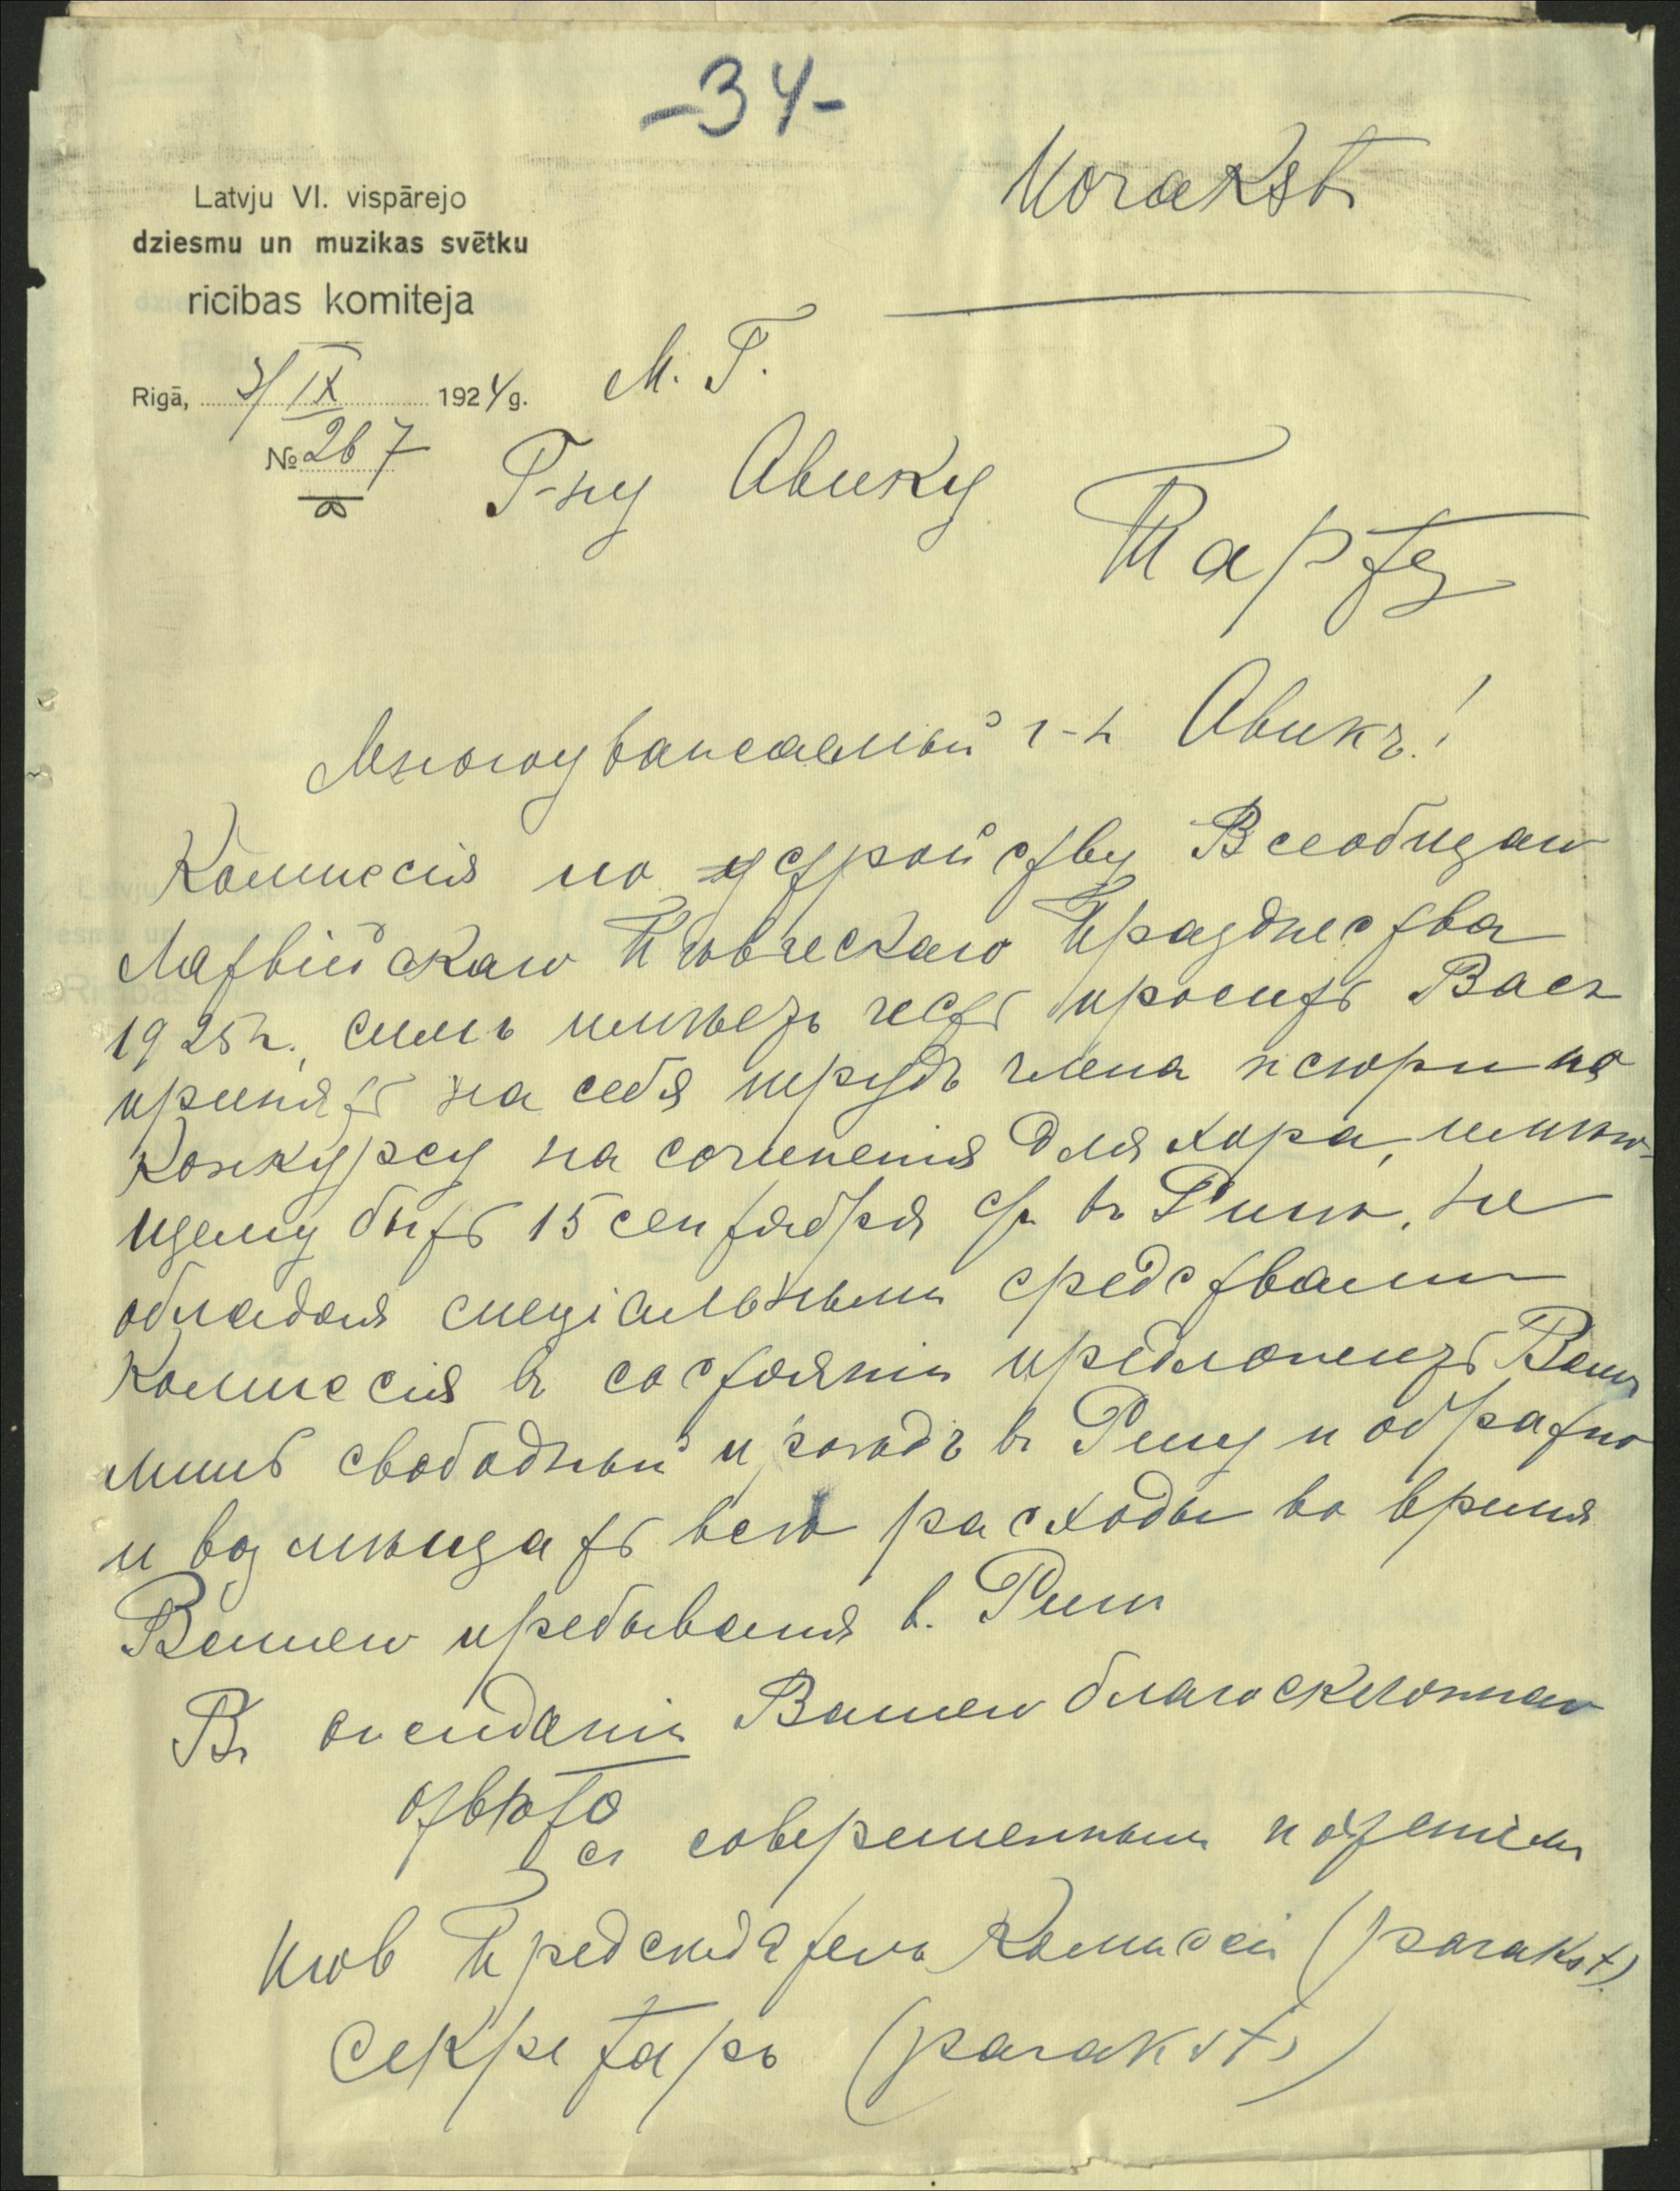 -34-
Norakst
Latvju VI. vispārejo
dziesmu un muzikas svētku
ricibas komiteja
Rigā, 3/IX 1924 g.
№ 267
М. Г.
Г-ну Авику
Тарту
Многоуважаемый г-н Авикъ!
Коммиссія по устройству Всеобщаго
Латвійскаго Пѣвческаго Празднества
1925 г., симъ имѣетъ честь просить Васъ
принять на себя трудъ члена жюри по
конкурсу на сочиненія для хора, имѣю-
щему быть 15 сентября с/г въ Ригѣ. Не
обладая спеціальными средствами
Коммиссія въ состояніи предложить Вамъ
лишь свободный проѣздъ въ Ригу и обратно
и возмѣщать всѣ расходы во время
Вашего пребыванія в. Ригѣ
Въ ожиданіи Вашего благосклоннаго
отвѣта
съ совершеннымъ почтеніемъ
Предсѣдатель Комиссіи (parakst)
Секретарь (paraksts)